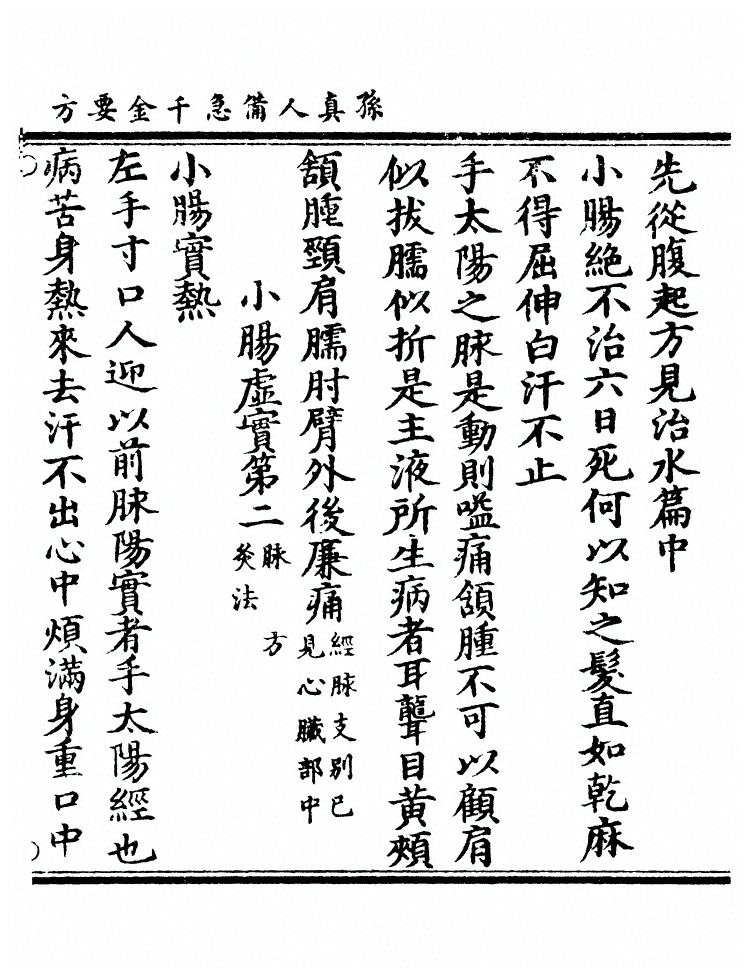 孫真人備急千金要方
先從腹起方見治水篇中
小腸絕不治六日死何以知之髮直如乾麻
不得屈伸白汗不止
手太陽之脉是動則嗌痛頷腫不可以顧肩
似拔臑似折是主液所生病者耳聾目黃頰
頷腫頸肩臑肘臂外後廉痛經脉支別已見心臟部中
小腸虛實第二脉方灸法
小腸實熱
左手寸口人迎以前脉陽實者手太陽經也
病苦身熱來去汗不出心中煩滿身重口中